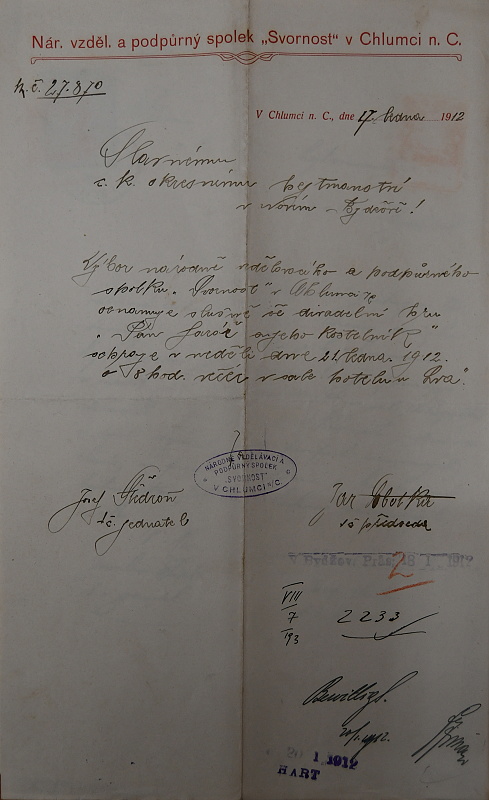 Nár. vzděl. a podpůrný spolek „Svornost“ v Chlumci n. C.
k. č. 27.870
V Chlumci n. C., dne 17. ledna 1912
Slavnému
c. k. okresnímu hejtmanství
v Novém Bydžově!
Výbor národně vzdělavacího a podpůrného
spolku „Svornost“ v Chlumci n/C
oznamuje slušně že divadelní hru
„Pán farář a jeho kostelník“
sehraje v neděli dne 21 ledna 1912.
o 8 hod. večer v sále hotelu u „Lva“.
NÁRODNĚ VZDĚLÁVACÍ A
PODPŮRNÝ SPOLEK
„SVORNOST“
V CHLUMCI n/C.
Josef Štědroň
t. č. jednatel
Jar.
t. č. předseda
1 1912
2
VIII
7
193
2233
Bewilligt.
20/1. 1912.
20 1 1912
HART